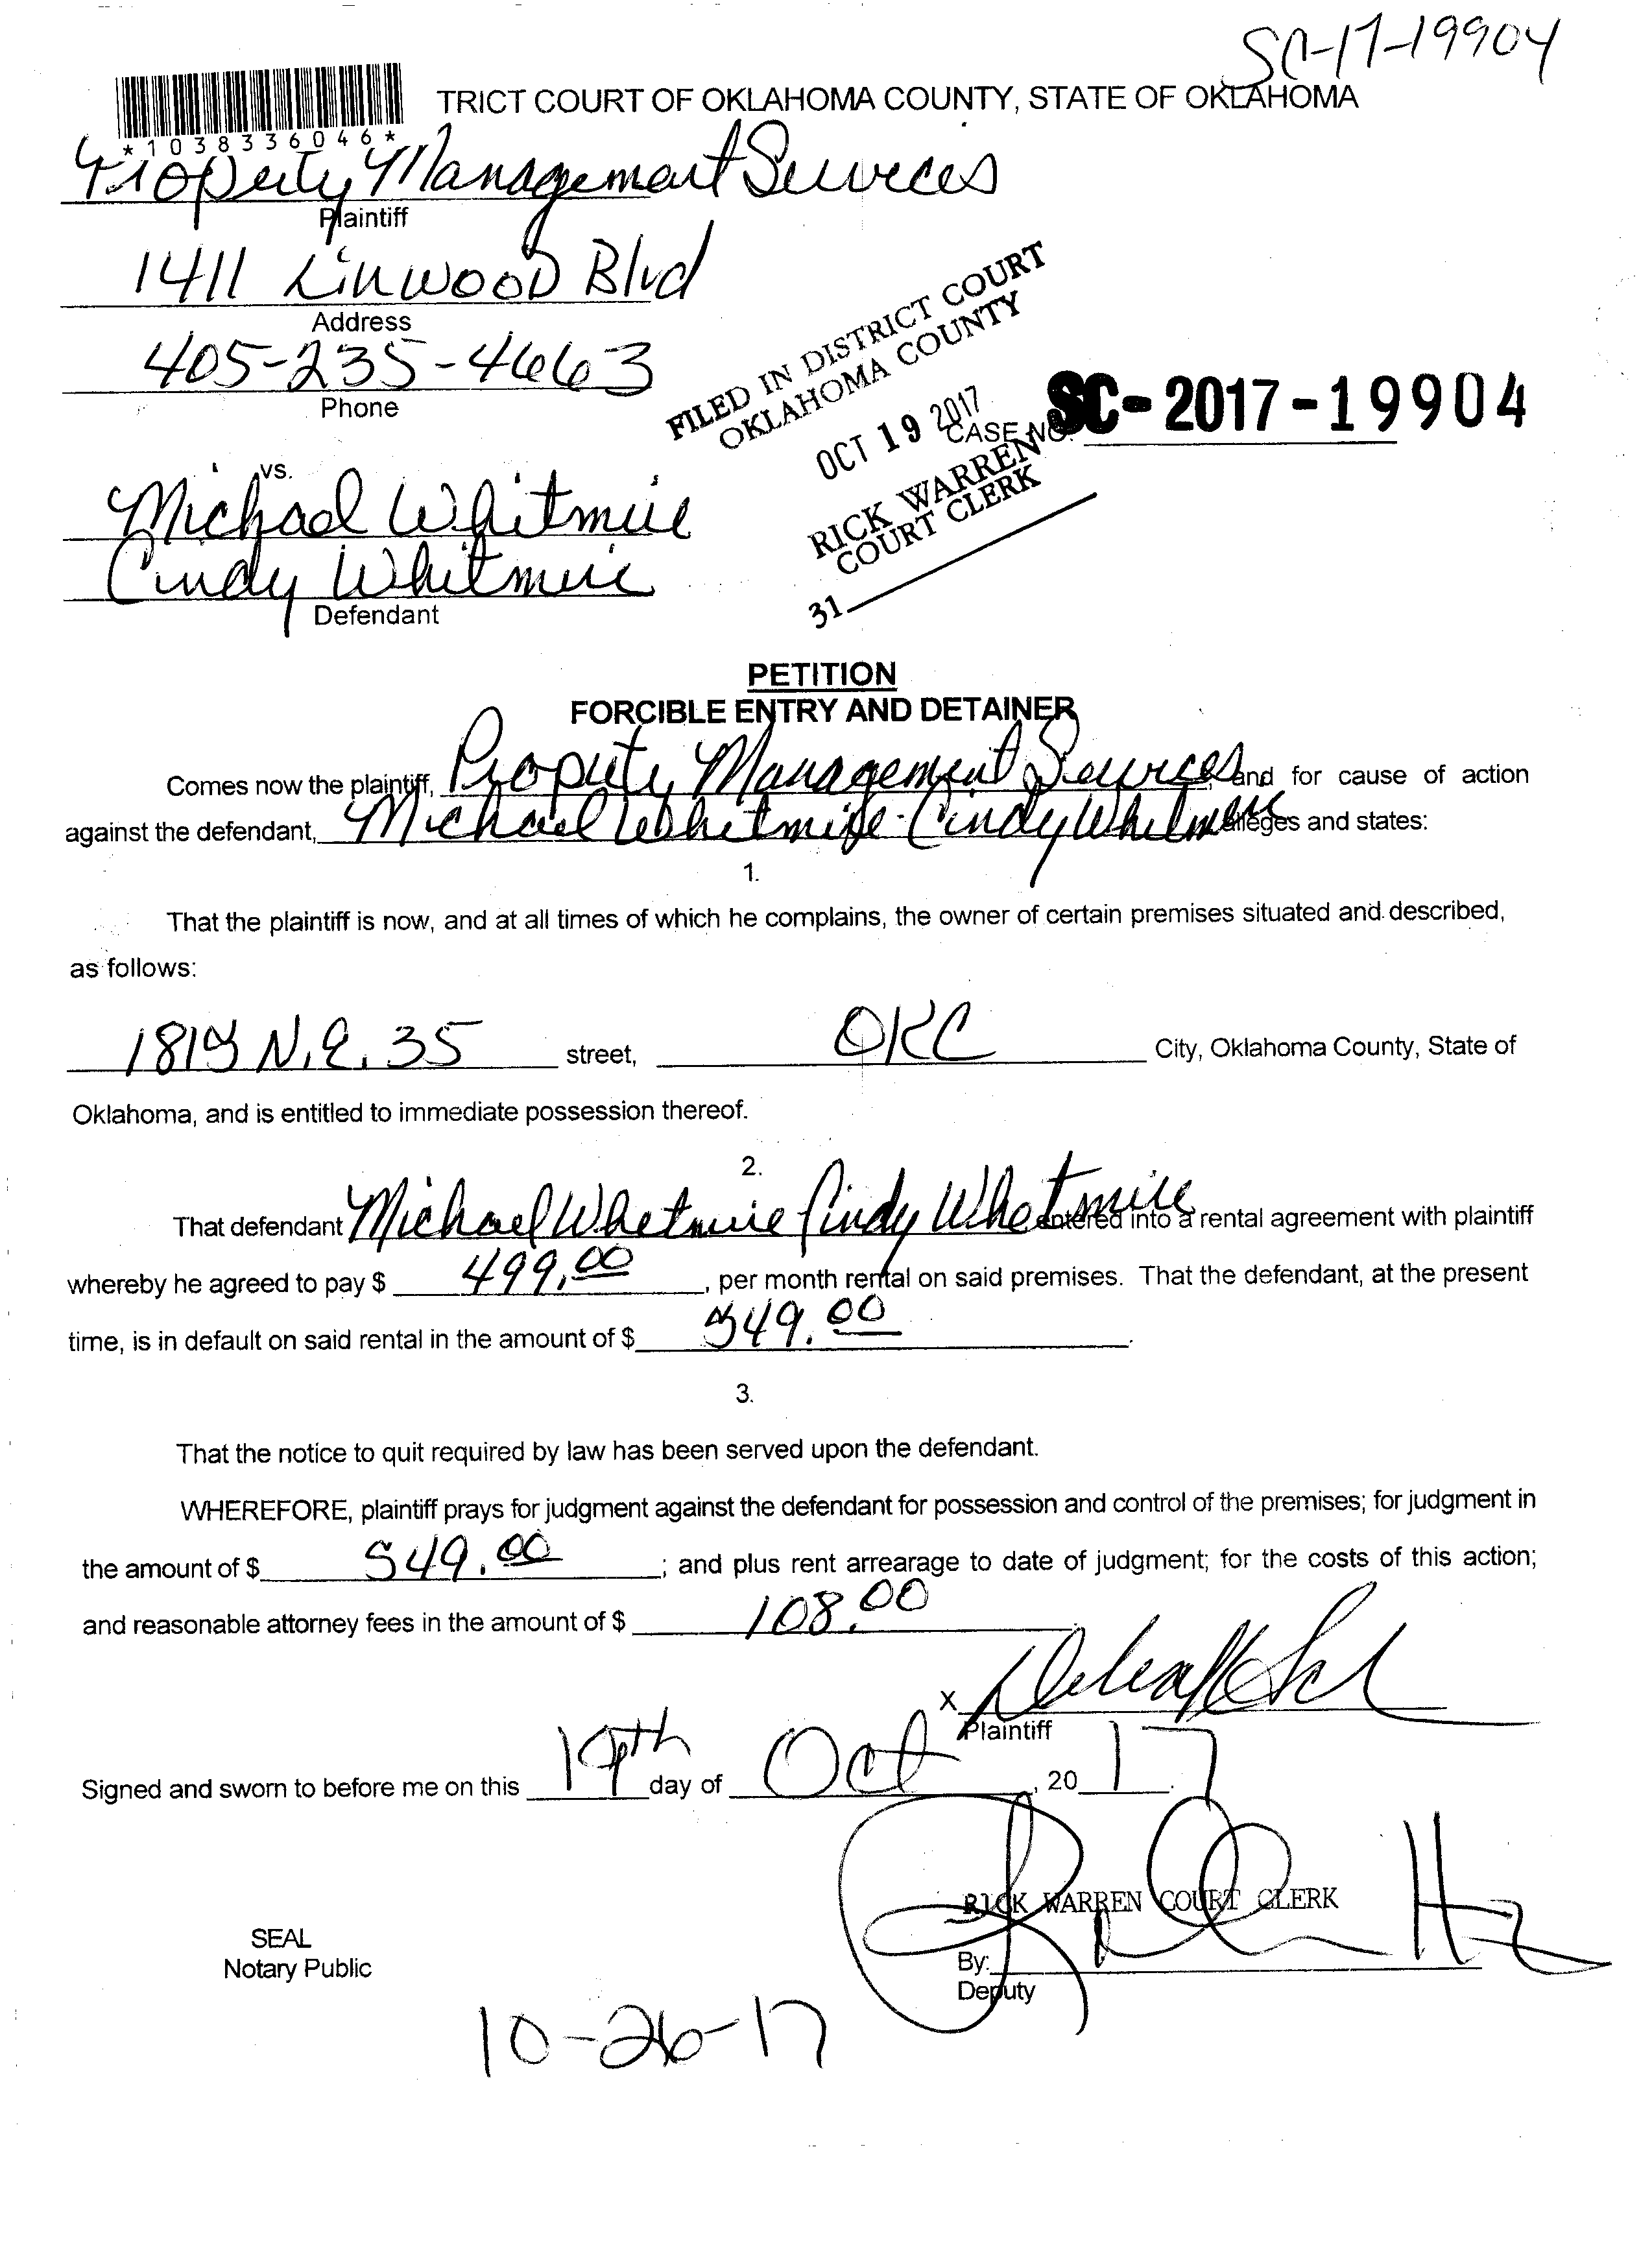 SC-17-19904
TRICT COURT OF OKLAHOMA COUNTY, STATE OF OKLAHOMA
*1038336046*
Property Management Services
Plaintiff
1411 Linwood Blvd
Address
405-235-4663
Phone
FILED IN DISTRICT COURT
OKLAHOMA COUNTY
OCT 19 2017
CASE NO. SC-2017-19904
RICK WARREN
COURT CLERK
31
vs.
Michael Whitmire
Cindy Whitmire
Defendant
PETITION
FORCIBLE ENTRY AND DETAINER
Comes now the plaintiff, Property Management Services, and for cause of action
against the defendant, Michael Whitmire - Cindy Whitmire alleges and states:
1.
That the plaintiff is now, and at all times of which he complains, the owner of certain premises situated and described,
as follows:
N.E. 35 street, OKC City, Oklahoma County, State of
Oklahoma, and is entitled to immediate possession thereof.
2.
That defendant Michael Whitmire Cindy Whitmire entered into a rental agreement with plaintiff
whereby he agreed to pay $ 499.00, per month rental on said premises. That the defendant, at the present
time, is in default on said rental in the amount of $ 549.00.
3.
That the notice to quit required by law has been served upon the defendant.
WHEREFORE, plaintiff prays for judgment against the defendant for possession and control of the premises; for judgment in
the amount of $ 549.00; and plus rent arrearage to date of judgment; for the costs of this action;
and reasonable attorney fees in the amount of $ 108.00
X
Plaintiff
Signed and sworn to before me on this 19th day of Oct, 2017.
RICK WARREN COURT CLERK
SEAL
Notary Public
By:
Deputy
10-26-17